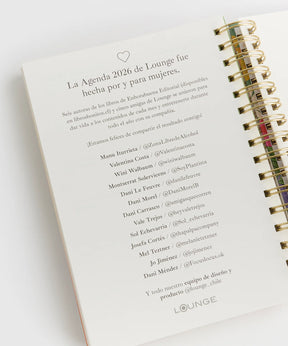 La Agenda 2026 de Lounge fue
hecha por y para mujeres.
Seis autoras de los libros de Enhorabuena Editorial (disponibles
en librosbonitos.cl) y cinco amigas de Lounge se unieron para
dar vida a los contenidos de cada mes y entretenerte durante
todo el año con su compañía.
¡Estamos felices de compartir el resultado contigo!
Manu Iturrieta /
Valentina Costa / @Valentinacosta
Wini Walbaum / @winiwalbaum
Montserrat Solervicens /
Dani Le Feuvre / @danilefeuvre
Dani Morel /
Dani Carrasco /
Vale Trejos / @heyvaletrejos
Sol Echevarría / @sol_echevarria
Josefa Cortés / @thepulpacompany
Mel Teztner / @melanieteztner
Jo Jiménez / @jojimenez
Dani Méndez /
Y todo nuestro equipo de diseño y
producto @lounge_chile
LOUNGE